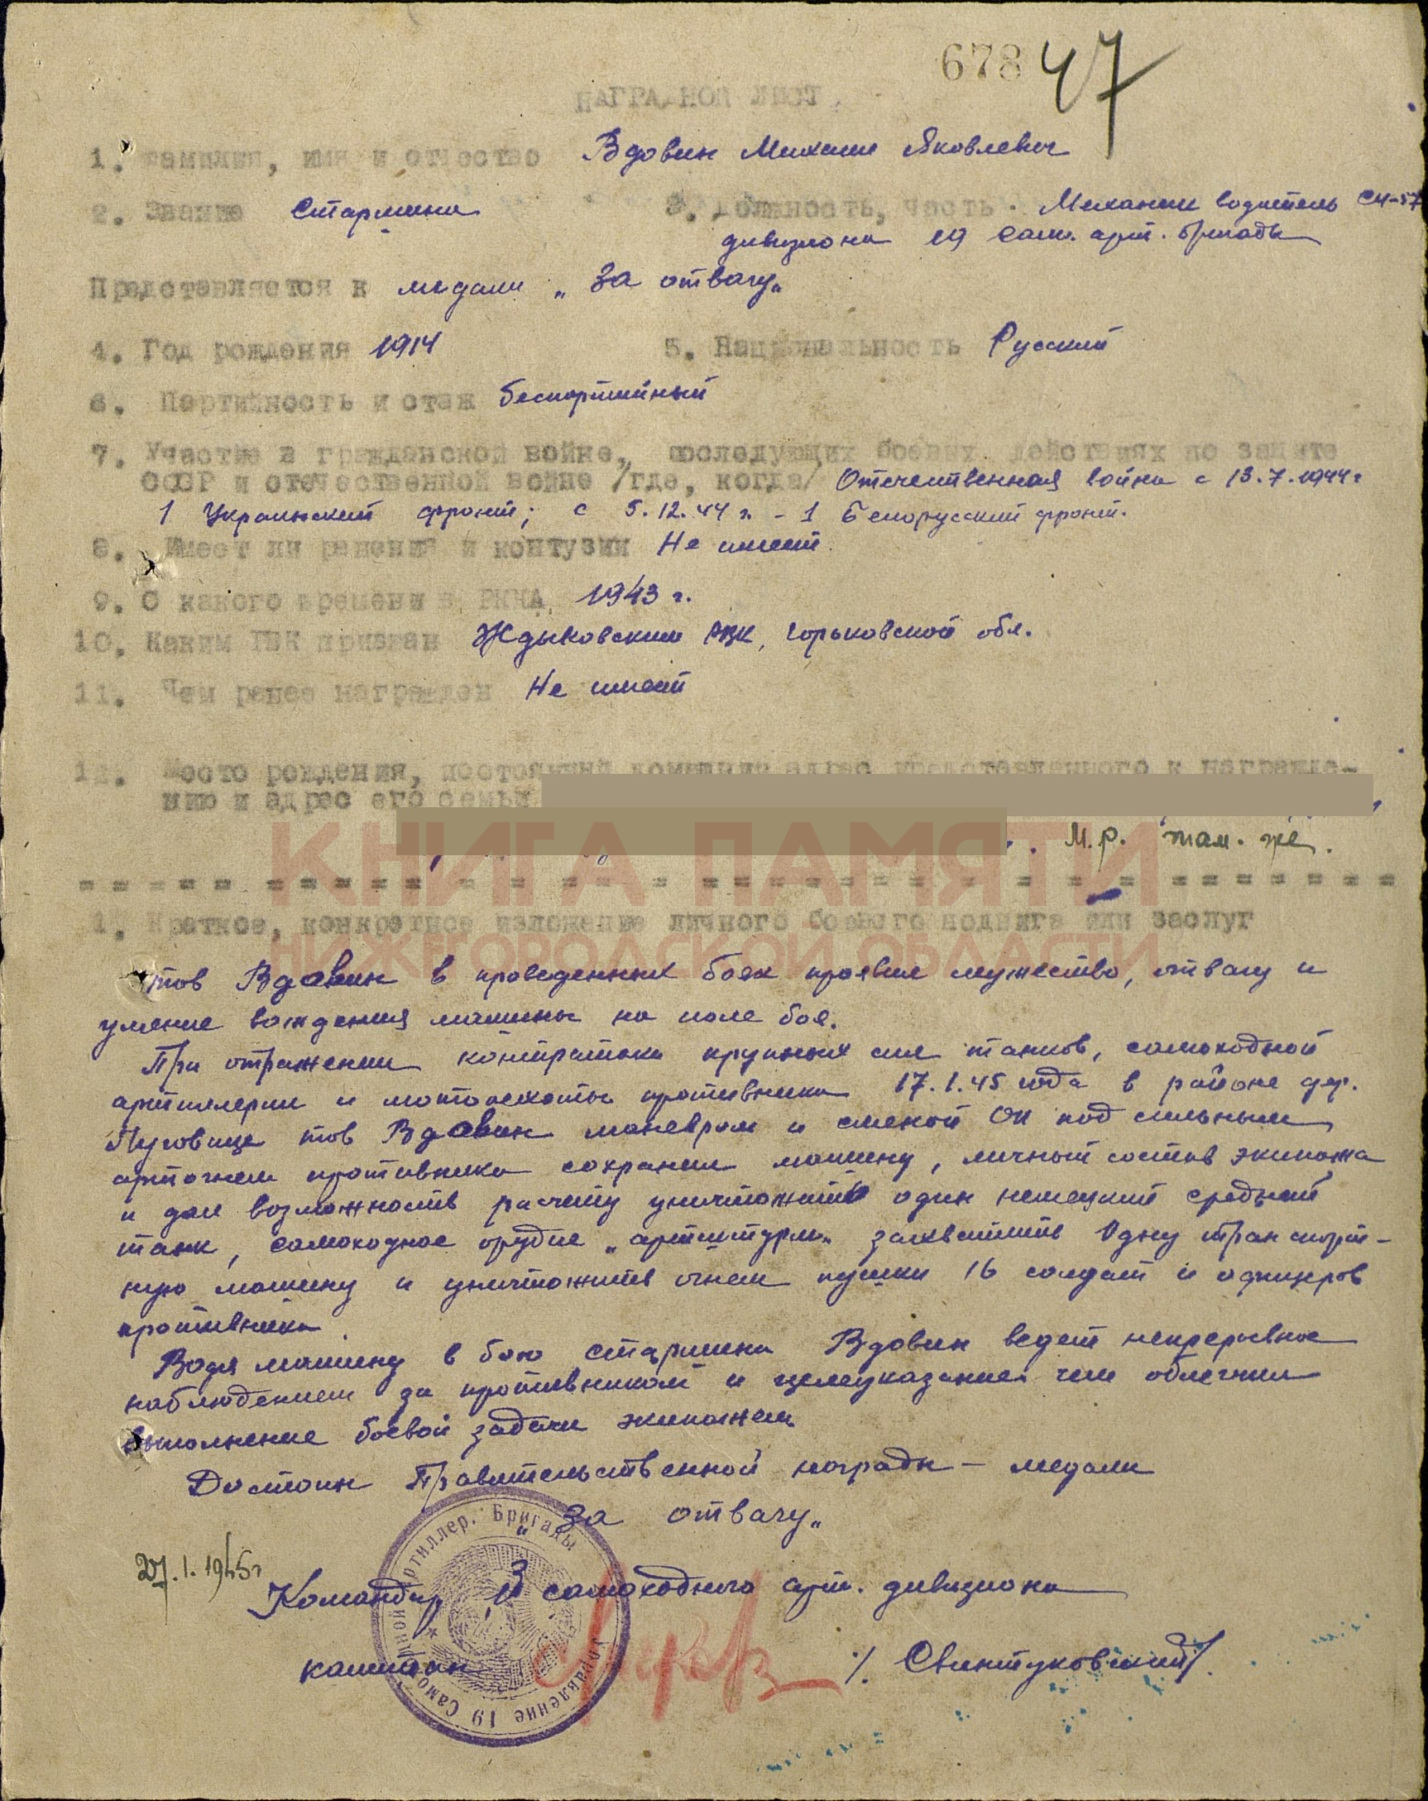 678 47
НАГРАДНОЙ ЛИСТ.
1. Фамилия, имя и отчество Вдовин Михаил Яковлевич
2. Звание Старшина 3. Должность, часть Механик водитель СУ-57
дивизиона 19 сам. арт. бригады
Представляется к медали „За отвагу„
4. Год рождения 1914 5. Национальность Русский
6. Партийность и стаж беспартийный
7. Участие в гражданской войне, последующих боевых действиях по защите
СССР и отечественной войне /где, когда/ Отечественная война с 13.7.1944г
1 Украинский фронт; с 5.12.44 г. - 1 Белорусский фронт.
8. Имеет ли ранения и контузии Не имеет.
9. С какого времени в РККА 1943 г.
10. Каким РВК призван РВК, Горьковской обл.
11. Чем ранее награжден Не имеет
12. Место рождения, постоянный домашний адрес представленного к награжде-
нию и адрес его семьи
М.р. там. же.
КНИГА ПАМЯТИ
НИЖЕГОРОДСКОЙ ОБЛАСТИ
1. Краткое, конкретное изложение личного боевого подвига или заслуг
тов Вдовин в проведенных боях проявил мужество, отвагу и
умение вождения машины на поле боя.
При отражении контратаки крупных сил танков, самоходной
артиллерии и мотопехоты противника 17.1.45 года в районе дер.
тов Вдовин маневром и сменой ОП под сильным
артогнем противника сохранил машину, личный состав экипажа
и дал возможность расчету уничтожить один немецкий средний
танк, самоходное орудие „артштурм„ захватить одну транспорт-
ную машину и уничтожить огнем пушки 16 солдат и офицеров
противника.
Водя машину в бою старшина Вдовин ведет непрерывное
наблюдением за противником и целеуказание чем облегчил
выполнение боевой задачи экипажем
Достоин Правительственной награды – медали
„За отвагу„
27.1.1945г
Командир 3 самоходного арт. дивизиона
капитан /. Свинтуковский/.
Управление 19 Самоходной Артиллер. Бригады